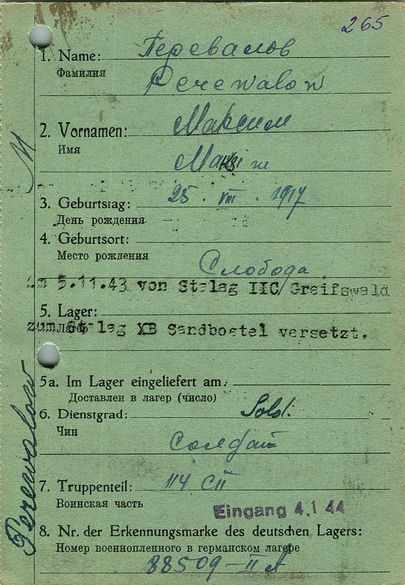 265
1. Name: Перевалов
Фамилия Perewalow
2. Vornamen: Максим
Имя Maksim
3. Geburtstag: 25. VIII. 1917
День рождения
4. Geburtsort:
Место рождения Слобода.
am 5.11.43 von Stalag IIC/Greifswald
5. Lager:
zum Stalag XB Sandbostel versetzt.
5a. Im Lager eingeliefert am:
Доставлен в лагер (число)
6. Dienstgrad: Sold.
Чин Солдат
7. Truppenteil: 114 СП
Воинская часть
Eingang 4.1.44
8. Nr. der Erkennungsmarke des deutschen Lagers:
Номер военнопленного в германском лагере
88509-II A
M
Perewalow